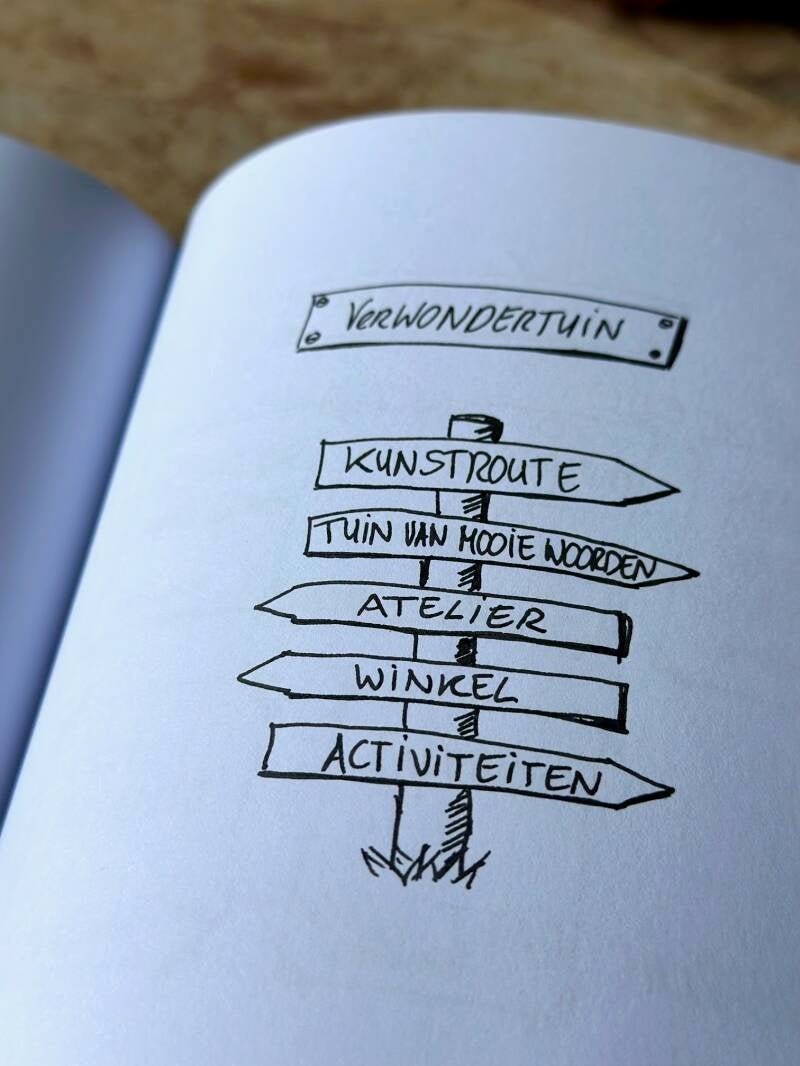 VERWONDERTUIN
KUNSTROUTE
TUIN VAN MOOIE WOORDEN
ATELIER
WINKEL
ACTIVITEITEN